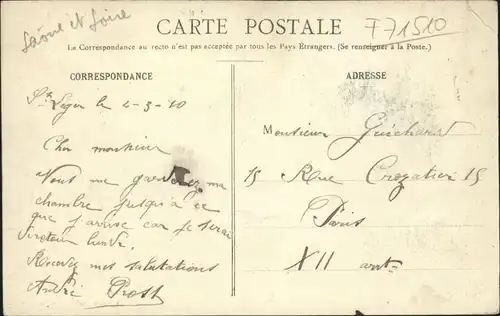 Saône et Loire
CARTE POSTALE
F71510
La Correspondance au recto n'est pas acceptée par tous les Pays Étrangers. (Se renseigner à la Poste.)
CORRESPONDANCE
St Leger le 2-3-10
Cher monsieur
Vous me garderez ma
chambre jusqu'à ce
que j'arrive car je serai
lundi.
Recevez mes salutations
André Prost
ADRESSE
Monsieur Guichard
15 Rue Crozatier 15
Paris
XII arrt